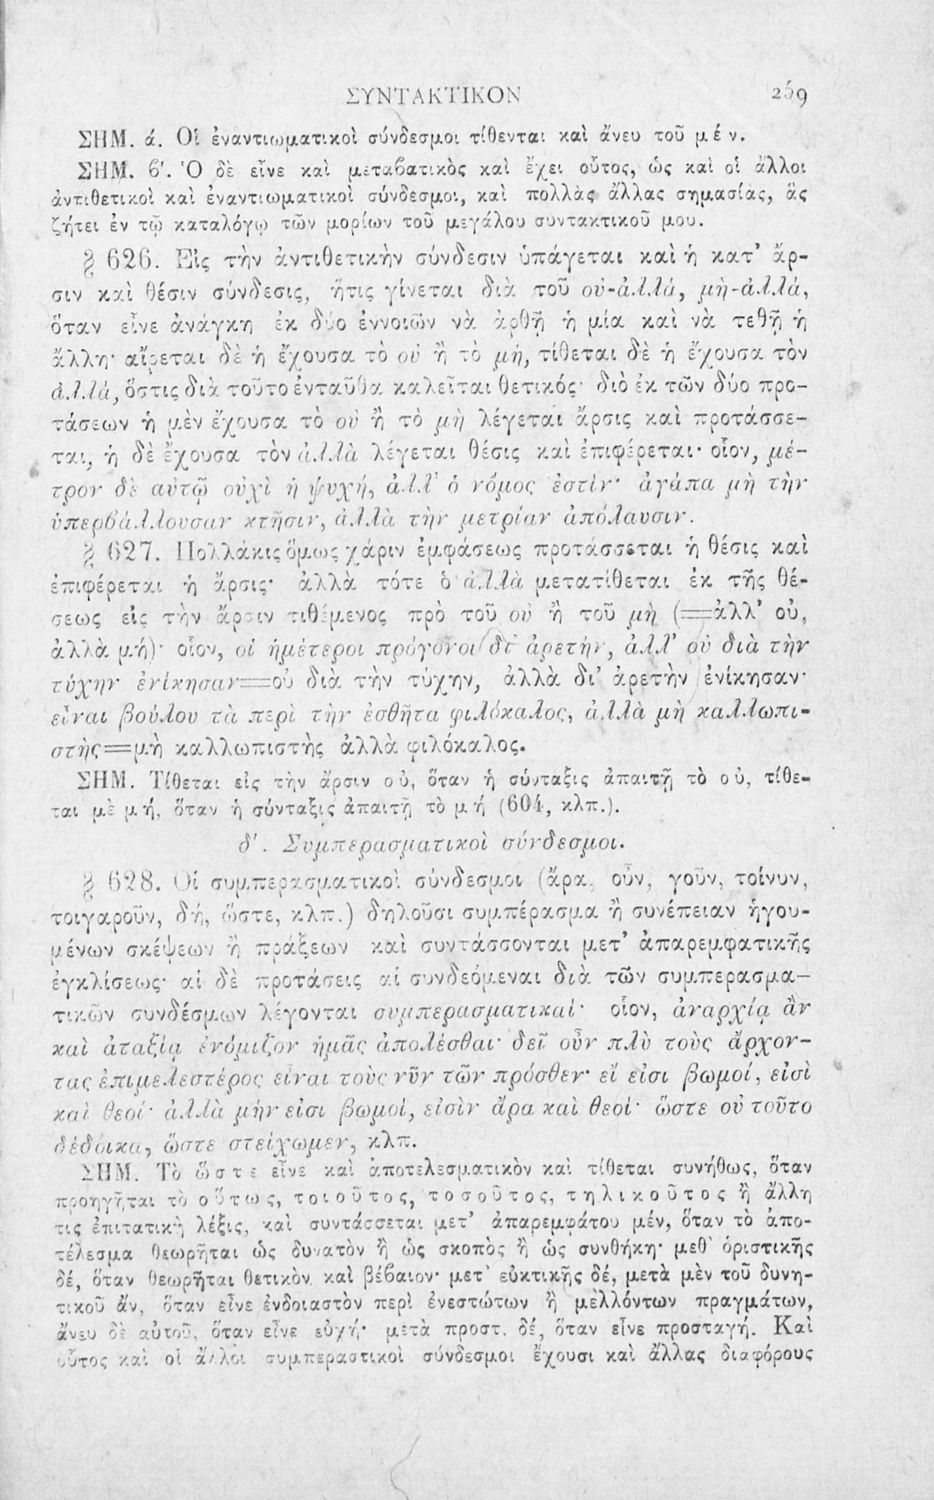 ΣΥΝΤΑΚΤΙΚΟΝ 259
ΣΗΜ. ά. Οἱ ἐναντιωματικοὶ σύνδεσμοι τίθενται καὶ ἄνευ τοῦ μέν.
ΣΗΜ. β'. Ὁ δὲ εἶνε καὶ μεταβατικὸς καὶ ἔχει οὗτος, ὡς καὶ οἱ ἄλλοι
ἀντιθετικοὶ καὶ ἐναντιωματικοὶ σύνδεσμοι, καὶ πολλὰς ἄλλας σημασίας, ἃς
ζήτει ἐν τῷ καταλόγῳ τῶν μορίων τοῦ μεγάλου συντακτικοῦ μου.
§ 626. Εἰς τὴν ἀντιθετικὴν σύνδεσιν ὑπάγεται καὶ ἡ κατ' ἄρ-
σιν καὶ θέσιν σύνδεσις, ἥτις γίνεται διὰ τοῦ οὐ-ἀλλά, μὴ-ἀλλά,
ὅταν εἶνε ἀνάγκη ἐκ δύο ἐννοιῶν νὰ ἀρθῇ ἡ μία καὶ νὰ τεθῇ ἡ
ἄλλη· αἴρεται δὲ ἡ ἔχουσα τὸ οὐ ἢ τὸ μή, τίθεται δὲ ἡ ἔχουσα τὸν
ἀλλά, ὅστις διὰ τοῦτο ἐνταῦθα καλεῖται θετικός· διὸ ἐκ τῶν δύο προ-
τάσεων ἡ μὲν ἔχουσα τὸ οὐ ἢ τὸ μὴ λέγεται ἄρσις καὶ προτάσσε-
ται, ἡ δὲ ἔχουσα τὸν ἀλλὰ λέγεται θέσις καὶ ἐπιφέρεται· οἷον, μέ-
τρον δὲ αὐτῷ οὐχὶ ἡ ψυχή, ἀλλ' ὁ νόμος ἐστίν· ἀγάπα μὴ τὴν
ὑπερβάλλουσαν κτῆσιν, ἀλλὰ τὴν μετρίαν ἀπόλαυσιν.
§ 627. Πολλάκις ὅμως χάριν ἐμφάσεως προτάσσεται ἡ θέσις καὶ
ἐπιφέρεται ἡ ἄρσις· ἀλλὰ τότε ὁ ἀλλὰ μετατίθεται ἐκ τῆς θέ-
σεως εἰς τὴν ἄρσιν τιθέμενος πρὸ τοῦ οὐ ἢ τοῦ μὴ (=ἀλλ' οὐ,
ἀλλὰ μή)· οἷον, οἱ ἡμέτεροι πρόγονοι δι' ἀρετήν, ἀλλ' οὐ διὰ τὴν
τύχην ἐνίκησαν=οὐ διὰ τὴν τύχην, ἀλλὰ δι' ἀρετὴν ἐνίκησαν·
εἶναι βούλου τὰ περὶ τὴν ἐσθῆτα φιλόκαλος, ἀλλὰ μὴ καλλωπι-
στὴς=μὴ καλλωπιστὴς ἀλλὰ φιλόκαλος.
ΣΗΜ. Τίθεται εἰς τὴν ἄρσιν οὐ, ὅταν ἡ σύνταξις ἀπαιτῇ τὸ οὐ, τίθε-
ται μὲ μή, ὅταν ἡ σύνταξις ἀπαιτῇ τὸ μή (604, κλπ.).
δ'. Συμπερασματικοὶ σύνδεσμοι.
§ 628. Οἱ συμπερασματικοὶ σύνδεσμοι (ἄρα, οὖν, γοῦν, τοίνυν,
τοιγαροῦν, δή, ὥστε, κλπ.) δηλοῦσι συμπέρασμα ἢ συνέπειαν ἡγου-
μένων σκέψεων ἢ πράξεων καὶ συντάσσονται μετ' ἀπαρεμφατικῆς
ἐγκλίσεως· αἱ δὲ προτάσεις αἱ συνδεόμεναι διὰ τῶν συμπερασμα-
τικῶν συνδέσμων λέγονται συμπερασματικαί· οἷον, ἀναρχίᾳ ἂν
καὶ ἀταξίᾳ ἐνόμιζον ἡμᾶς ἀπολέσθαι· δεῖ οὖν πλὺ τοὺς ἄρχον-
τας ἐπιμελεστέρος εἶναι τοὺς νῦν τῶν πρόσθεν· εἰ εἰσι βωμοί, εἰσὶ
καὶ θεοί· ἀλλὰ μὴν εἰσι βωμοί, εἰσὶν ἄρα καὶ θεοί· ὥστε οὐ τοῦτο
δέδοικα, ὥστε στείχωμεν, κλπ.
ΣΗΜ. Τὸ ὥστε εἶνε καὶ ἀποτελεσματικὸν καὶ τίθεται συνήθως, ὅταν
προηγῆται τὸ οὕτως, τοιοῦτος, τοσοῦτος, τηλικοῦτος ἢ ἄλλη
τις ἐπιτατικὴ λέξις, καὶ συντάσσεται μετ' ἀπαρεμφάτου μέν, ὅταν τὸ ἀπο-
τέλεσμα θεωρῆται ὡς δυνατὸν ἢ ὡς σκοπὸς ἢ ὡς συνθήκη· μεθ' ὁριστικῆς
δέ, ὅταν θεωρῆται θετικὸν καὶ βέβαιον· μετ' εὐκτικῆς δέ, μετὰ μὲν τοῦ δυνη-
τικοῦ ἄν, ὅταν εἶνε ἐνδοιαστὸν περὶ ἐνεστώτων ἢ μελλόντων πραγμάτων,
ἄνευ δὲ αὐτοῦ, ὅταν εἶνε εὐχή· μετὰ προστ. δέ, ὅταν εἶνε προσταγή. Καὶ
οὗτος καὶ οἱ ἄλλοι συμπεραστικοὶ σύνδεσμοι ἔχουσι καὶ ἄλλας διαφόρους